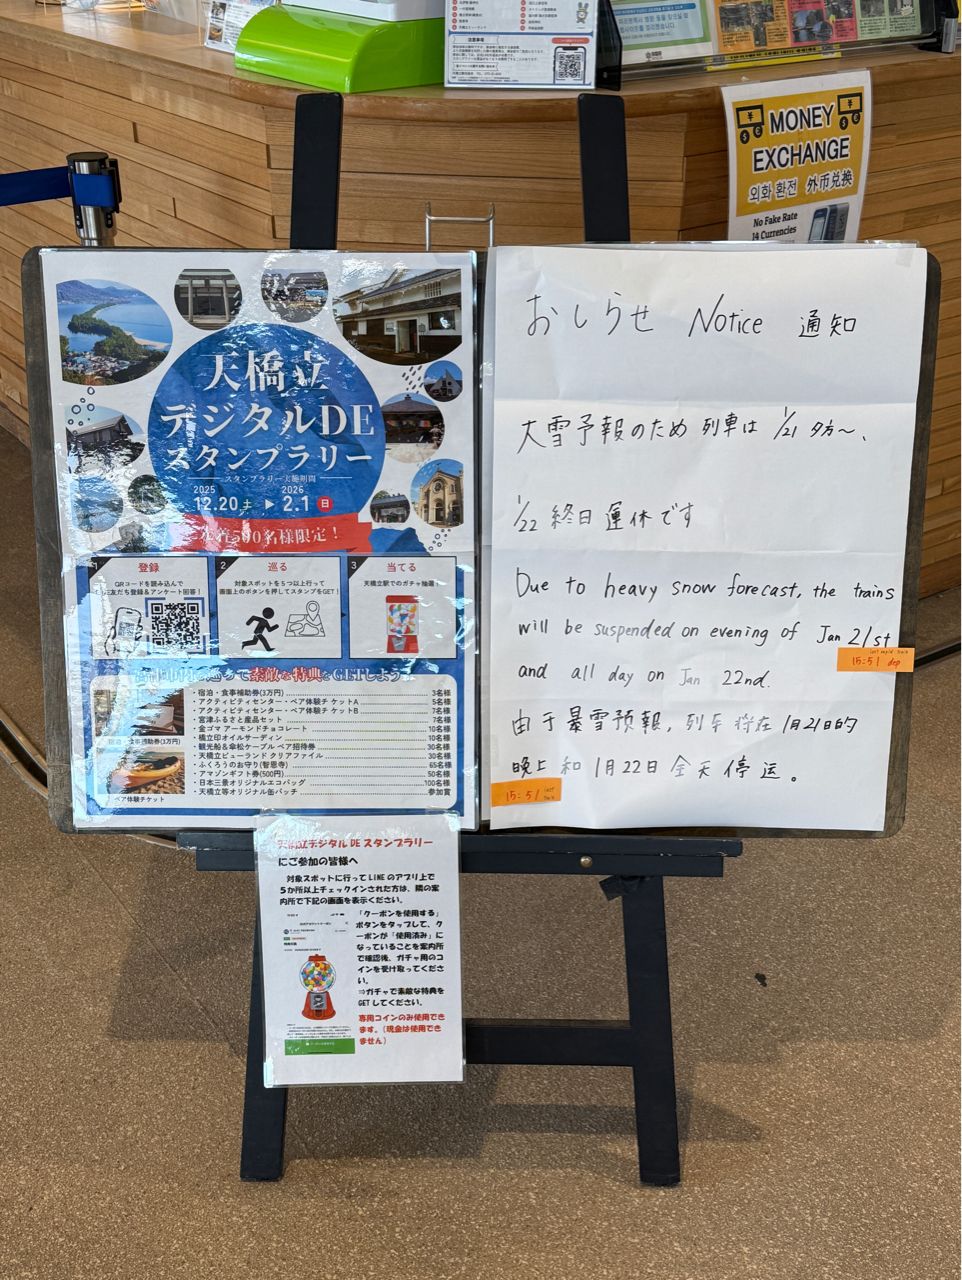 MONEY
EXCHANGE
외화 환전 外币兑换
No Fake Rate
14 Currencies
天橋立
デジタルDE
スタンプラリー
スタンプラリー実施期間
2025
12.20 土 ▶ 2026
2.1 日
先着500名様限定！
1 登録
QRコードを読み込んで
友だち登録&アンケート回答！
2 巡る
対象スポットを5つ以上行って
画面上のボタンを押してスタンプをGET！
3 当てる
天橋立駅でのガチャ抽選
素敵な特典をGETしよう
・宿泊・食事補助券(3万円) 3名様
・アクティビティセンター・ペア体験チケットA 5名様
・アクティビティセンター・ペア体験チケットB 7名様
・宮津ふるさと産品セット 7名様
・金ゴマアーモンドチョコレート 10名様
・橋立印オイルサーディン 10名様
・観光船&傘松ケーブル ペア招待券 30名様
・天橋立ビューランド クリアファイル 30名様
・ふくろうのお守り(智恩寺) 65名様
・アマゾンギフト券(500円) 50名様
・日本三景オリジナルエコバッグ 100名様
・天橋立等オリジナル缶バッチ 参加賞
宿泊・食事補助券(3万円)
ペア体験チケット
おしらせ Notice 通知
大雪予報のため列車は 1/21 夕方〜、
1/22 終日運休です
Due to heavy snow forecast, the trains
will be suspended on evening of Jan 21st
last rapid train
15:51 dep
and all day on Jan 22nd.
由于暴雪预报，列车将在1月21日的
晚上和1月22日全天停运。
15:51 last train
天橋立デジタル DE スタンプラリー
にご参加の皆様へ
対象スポットに行って LINE のアプリ上で
5か所以上チェックインされた方は、隣の案
内所で下記の画面を表示ください。
「クーポンを使用する」
ボタンをタップして、ク
ーポンが「使用済み」に
なっていることを案内所
で確認後、ガチャ用のコ
インを受け取ってくださ
い。
⇒ガチャで素敵な特典を
GETしてください。
専用コインのみ使用でき
ます。(現金は使用でき
ません)